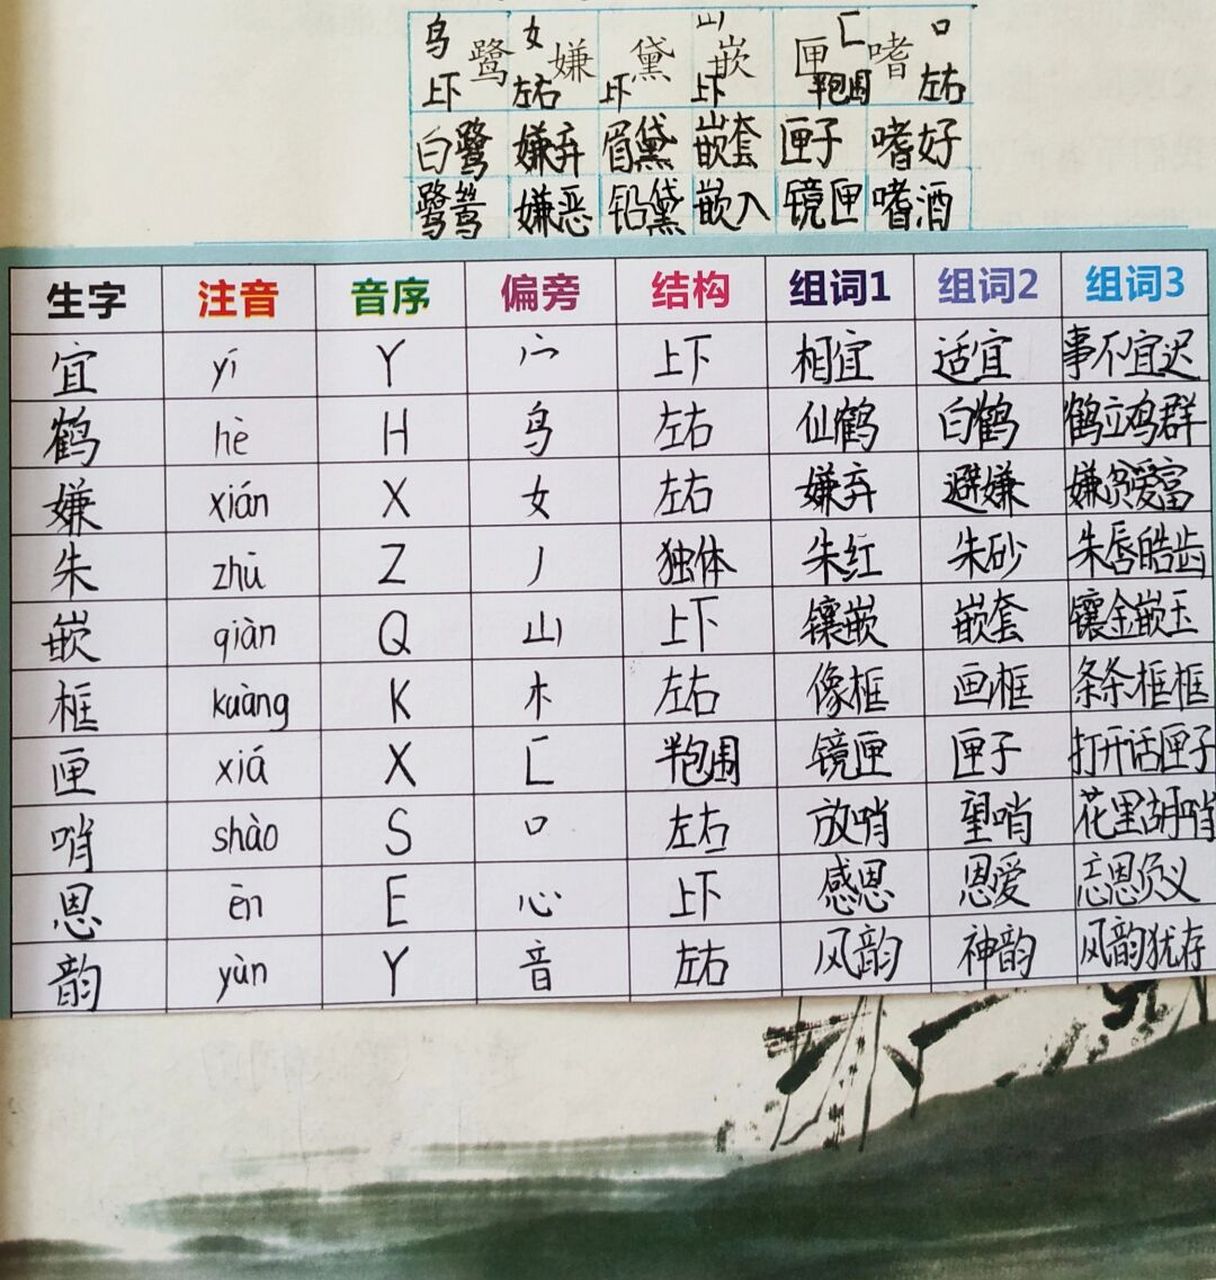 鸟 女 山 匚 口
鹭 嫌 黛 嵌 匣 嗜
上下 左右 上下 上下 半包围 左右
白鹭 嫌弃 眉黛 嵌套 匣子 嗜好
鹭鸶 嫌恶 铅黛 嵌入 镜匣 嗜酒
生字 注音 音序 偏旁 结构 组词1 组词2 组词3
宜 yí Y 宀 上下 相宜 适宜 事不宜迟
鹤 hè H 鸟 左右 仙鹤 白鹤 鹤立鸡群
嫌 xián X 女 左右 嫌弃 避嫌 嫌贫爱富
朱 zhū Z 丿 独体 朱红 朱砂 朱唇皓齿
嵌 qiàn Q 山 上下 镶嵌 嵌套 镶金嵌玉
框 kuàng K 木 左右 像框 画框 条条框框
匣 xiá X 匚 半包围 镜匣 匣子 打开话匣子
哨 shào S 口 左右 放哨 望哨 花里胡哨
恩 ēn E 心 上下 感恩 恩爱 忘恩负义
韵 yùn Y 音 左右 风韵 神韵 风韵犹存